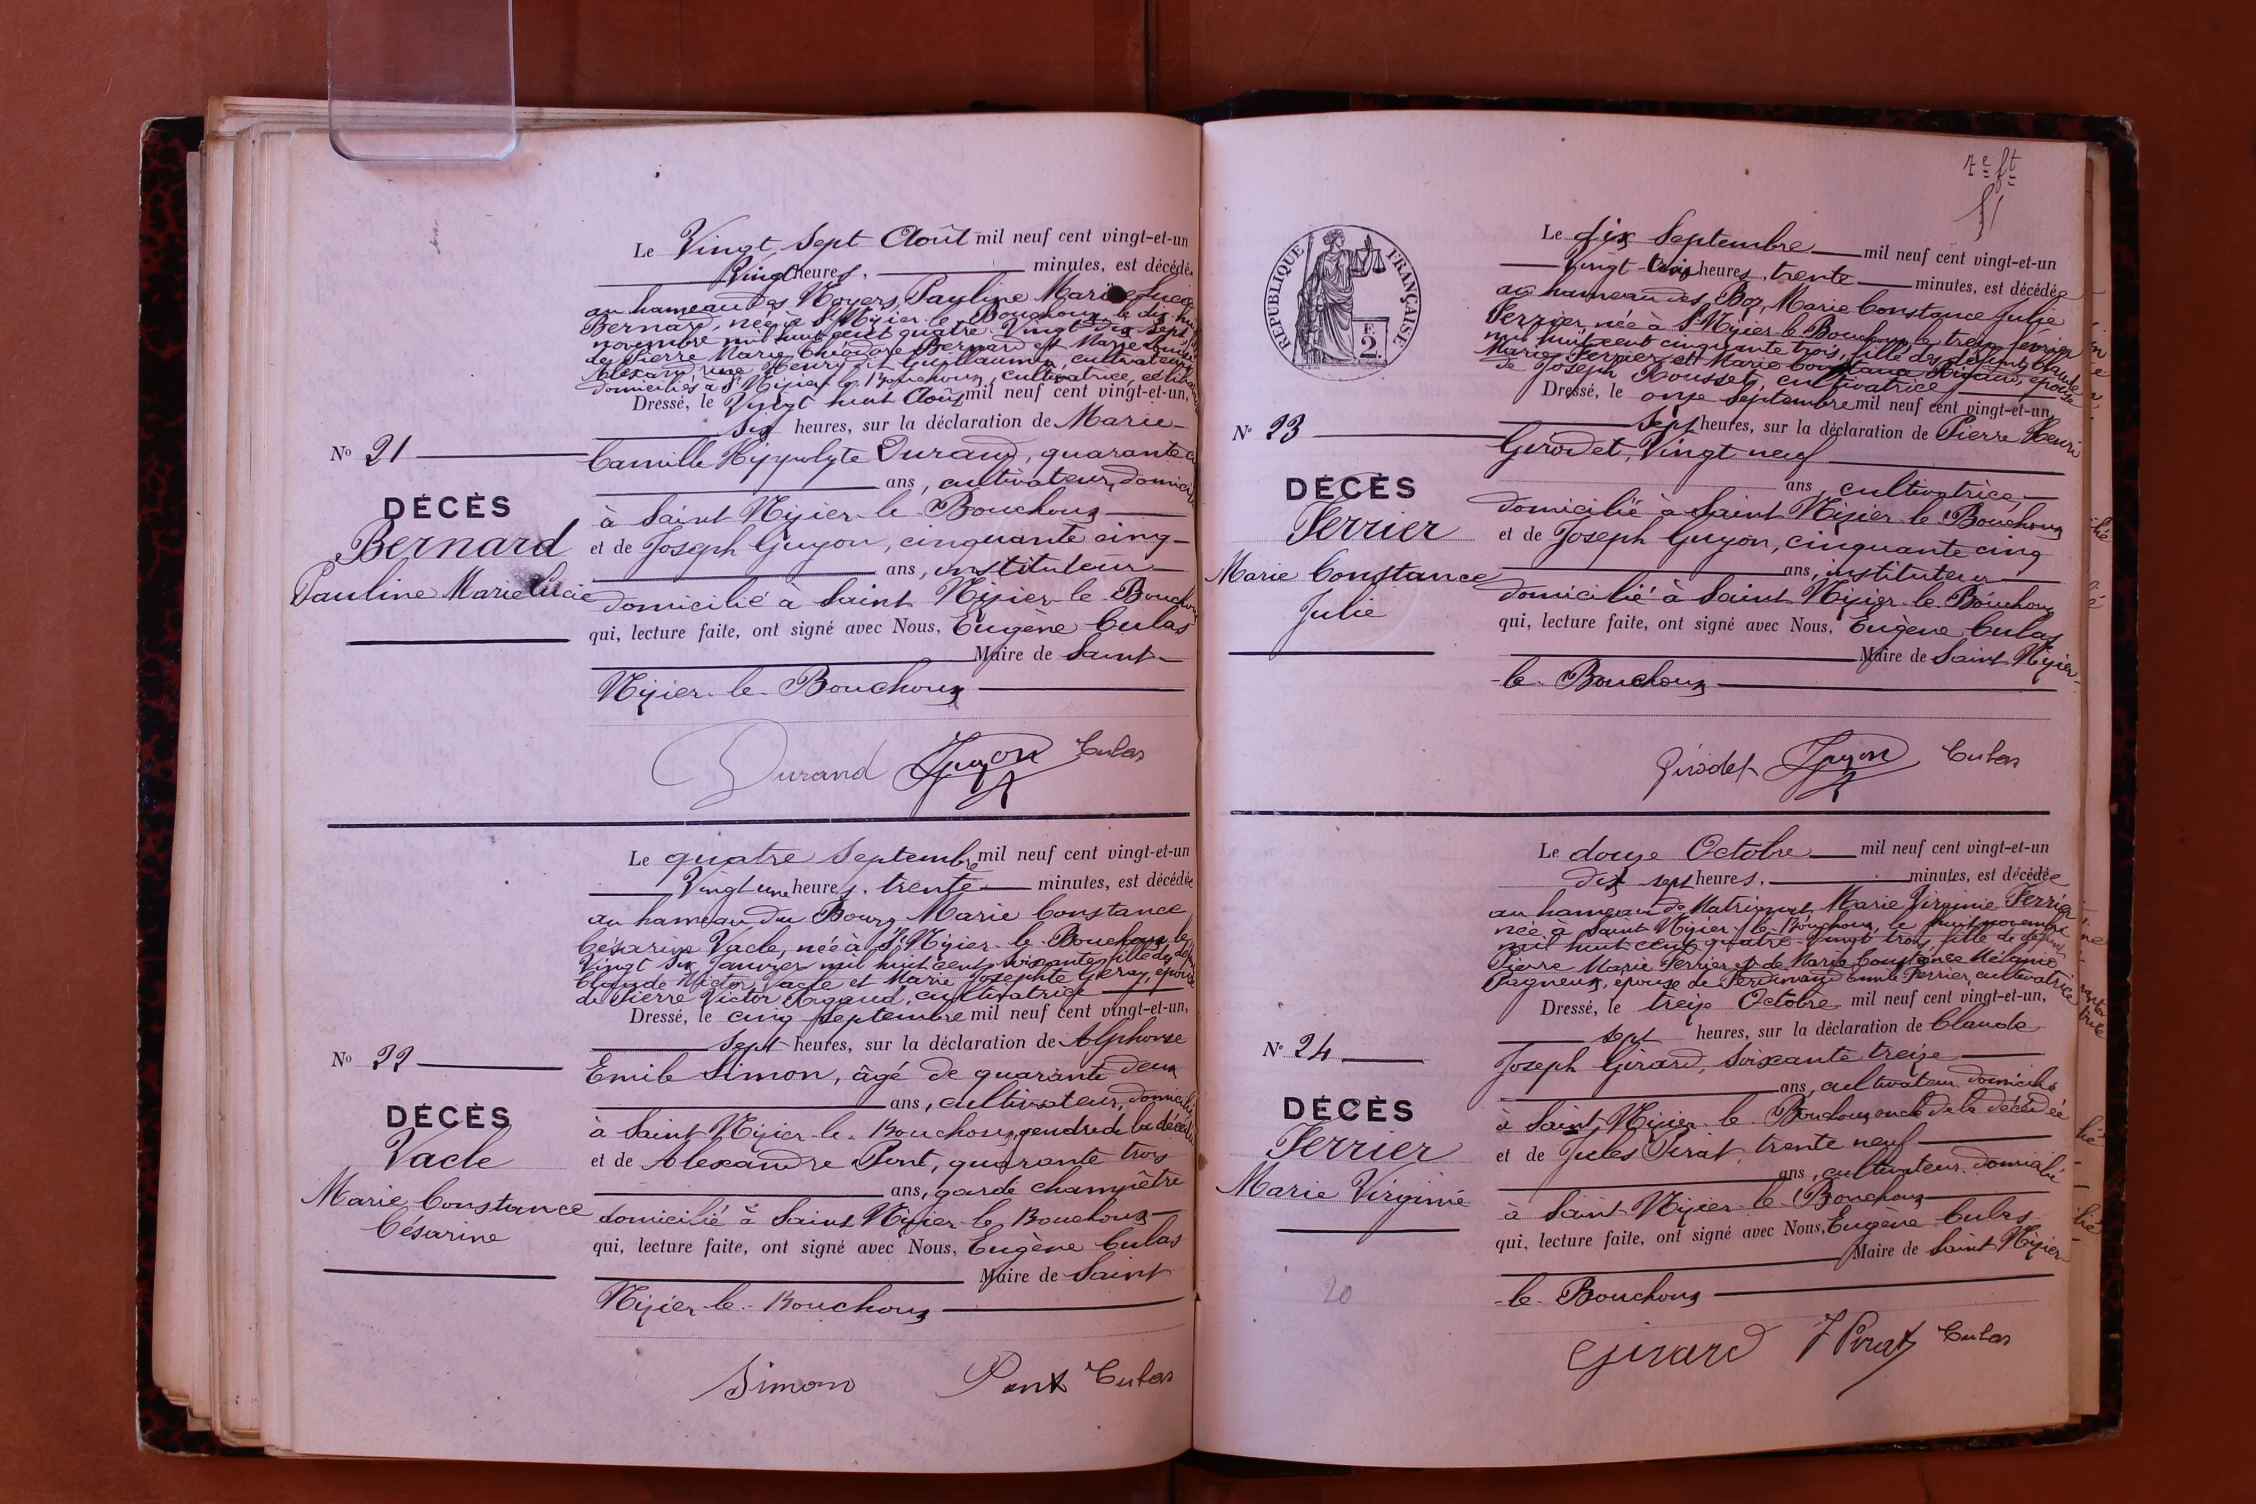 Le Vingt Sept Août mil neuf cent vingt-et-un
Vingt heures, minutes, est décédée
au hameau des Noyers, Pauline Marie Lucie
Bernard, née à St Nizier-le-Bouchoux le dix huit
novembre mil huit cent quatre Vingt dix sept, fille
de Pierre Marie Théodore Bernard et Marie Louise
Alexandrine Henry dit Guillaumin, cultivateurs
domiciliés à St Nizier-le-Bouchoux, cultivatrice, célibataire
Dressé, le Vingt huit Août mil neuf cent vingt-et-un,
Six heures, sur la déclaration de Marie-
Nº 21
Camille Hippolyte Durand, quarante
ans, cultivateur, domicilié
DÉCÈS
à Saint Nizier-le-Bouchoux
Bernard
et de Joseph Guyon, cinquante cinq
ans, instituteur
Pauline Marie Lucie
domicilié à Saint Nizier-le-Bouchoux
qui, lecture faite, ont signé avec Nous, Eugène Culas
Maire de Saint-
Nizier-le-Bouchoux
Durand Guyon Culas
Le quatre Septembre mil neuf cent vingt-et-un
Vingt une heures, trente minutes, est décédée
au hameau du Bourg Marie Constance
Césarine Vacle, née à St Nizier-le-Bouchoux le
Vingt Six Janvier mil huit cent soixante, fille des
Claude Victor Vacle et Marie Josephte Geray, épouse
de Pierre Victor Rigaud, cultivatrice
Dressé, le cinq Septembre mil neuf cent vingt-et-un,
Sept heures, sur la déclaration de Alphonse
Nº 22
Emile Simon, âgé de quarante deux
ans, cultivateur, domicilié
DÉCÈS
à Saint-Nizier-le-Bouchoux, gendre de la décédée
Vacle
et de Alexandre Pont, quarante trois
ans, garde champêtre
Marie Constance
Césarine
domicilié à Saint Nizier-le-Bouchoux
qui, lecture faite, ont signé avec Nous, Eugène Culas
Maire de Saint
Nizier-le-Bouchoux
Simon Pont Culas
7e ft
RÉPUBLIQUE FRANÇAISE
F. 2.
Le dix Septembre mil neuf cent vingt-et-un
Vingt-trois heures, trente minutes, est décédée
au hameau des Bos, Marie Constance Julie
Ferrier, née à St Nizier-le-Bouchoux, le treize février
mil huit cent cinquante trois, fille des défunts Claude
Marie Ferrier et Marie Constance Rigaud, épouse
de Joseph Rousset, cultivatrice
Dressé, le onze Septembre mil neuf cent vingt-et-un,
Sept heures, sur la déclaration de Pierre Henri
Nº 23
Girodet, Vingt neuf
ans, cultivatrice
DÉCÈS
domicilié à Saint Nizier-le-Bouchoux
Ferrier
et de Joseph Guyon, cinquante cinq
ans, instituteur
Marie Constance
Julie
domicilié à Saint Nizier-le-Bouchoux
qui, lecture faite, ont signé avec Nous, Eugène Culas
Maire de Saint Nizier-
-le-Bouchoux
Girodet Guyon Culas
Le douze Octobre mil neuf cent vingt-et-un
dix sept heures, minutes, est décédée
au hameau de Matrignat, Marie Virginie Ferrier
née à Saint Nizier-le-Bouchoux, le huit novembre
mil huit cent quatre-vingt trois, fille de défunt
Pierre Marie Ferrier et de Marie Constance Mélanie
Pagneux, épouse de Ferdinand Emile Ferrier, cultivatrice
Dressé, le treize Octobre mil neuf cent vingt-et-un,
sept heures, sur la déclaration de Claude
Nº 24
Joseph Girard, soixante treize
ans, cultivateur domicilié
DÉCÈS
à Saint Nizier-le-Bouchoux, oncle de la décédée
Ferrier
et de Jules Pirat, trente neuf
ans, cultivateur domicilié
Marie Virginie
à Saint-Nizier-le-Bouchoux
qui, lecture faite, ont signé avec Nous, Eugène Culas
Maire de Saint Nizier-
-le-Bouchoux
20
Girard J Pirat Culas